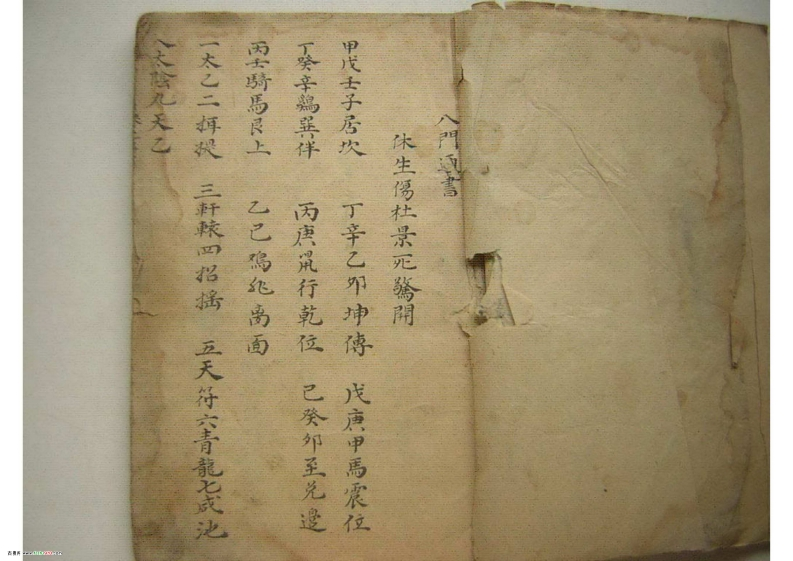 八門通書
休生傷杜景死驚開
甲戊壬子居坎 丁辛乙卯坤傳 戊庚甲馬震位
丁癸辛鷄巽伴 丙庚鼠行乾位 己癸卯至兑邊
丙壬騎馬艮上 乙己鷄飛离面
一太乙二揖提 三軒轅四招摇 五天符六青龍七咸池
八太陰九天乙